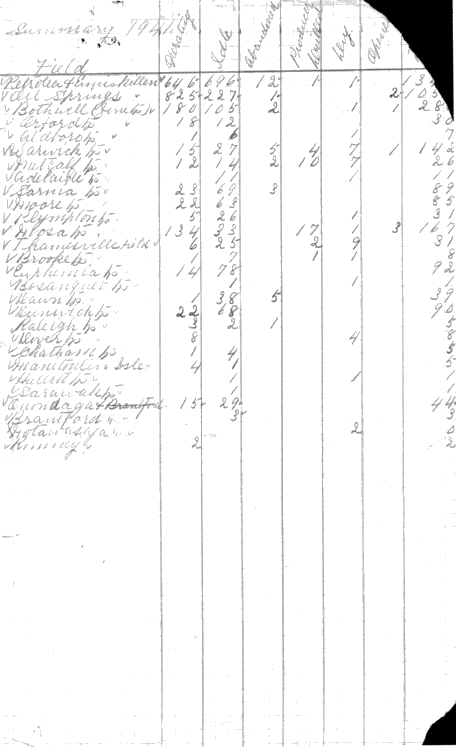 Summary 1941
Field Operating Idle Abandoned Producer Drilled Dry
Petrolea & Enniskillen 646 696 12 1 1
Oil Springs 825 227 1 2 105
Bothwell 180 105 2 1 1 28
Orford Tp 18 12 30
Aldboro Tp 6 1 7
Warwick Tp 15 27 5 4 7 1 142
Metcalf Tp 12 14 2 10 7 26
Adelaide Tp 11 1 11
Sarnia Tp 23 69 3 89
Moore Tp 22 63 85
Plympton Tp 5 26 1 31
Mosa Tp 134 33 17 1 3 167
Thamesville Field 6 25 2 9 31
Brooke Tp 1 7 1 1 8
Euphemia Tp 14 78 92
Bosanquet Tp 1 1 1
Dawn Tp 1 38 5 39
Dunwich Tp 22 68 90
Raleigh Tp 3 2 1 5
Dover Tp 8 4 8
Chatham Tp 1 4 5
Manitoulin Isle 4 1 5
Hullett Tp 1 1 1
Sarawak Tp 1 1
Onondaga & Brantford 15 29 44
Brantford 3 3
Notawasaga 2 0
Romney 2 2